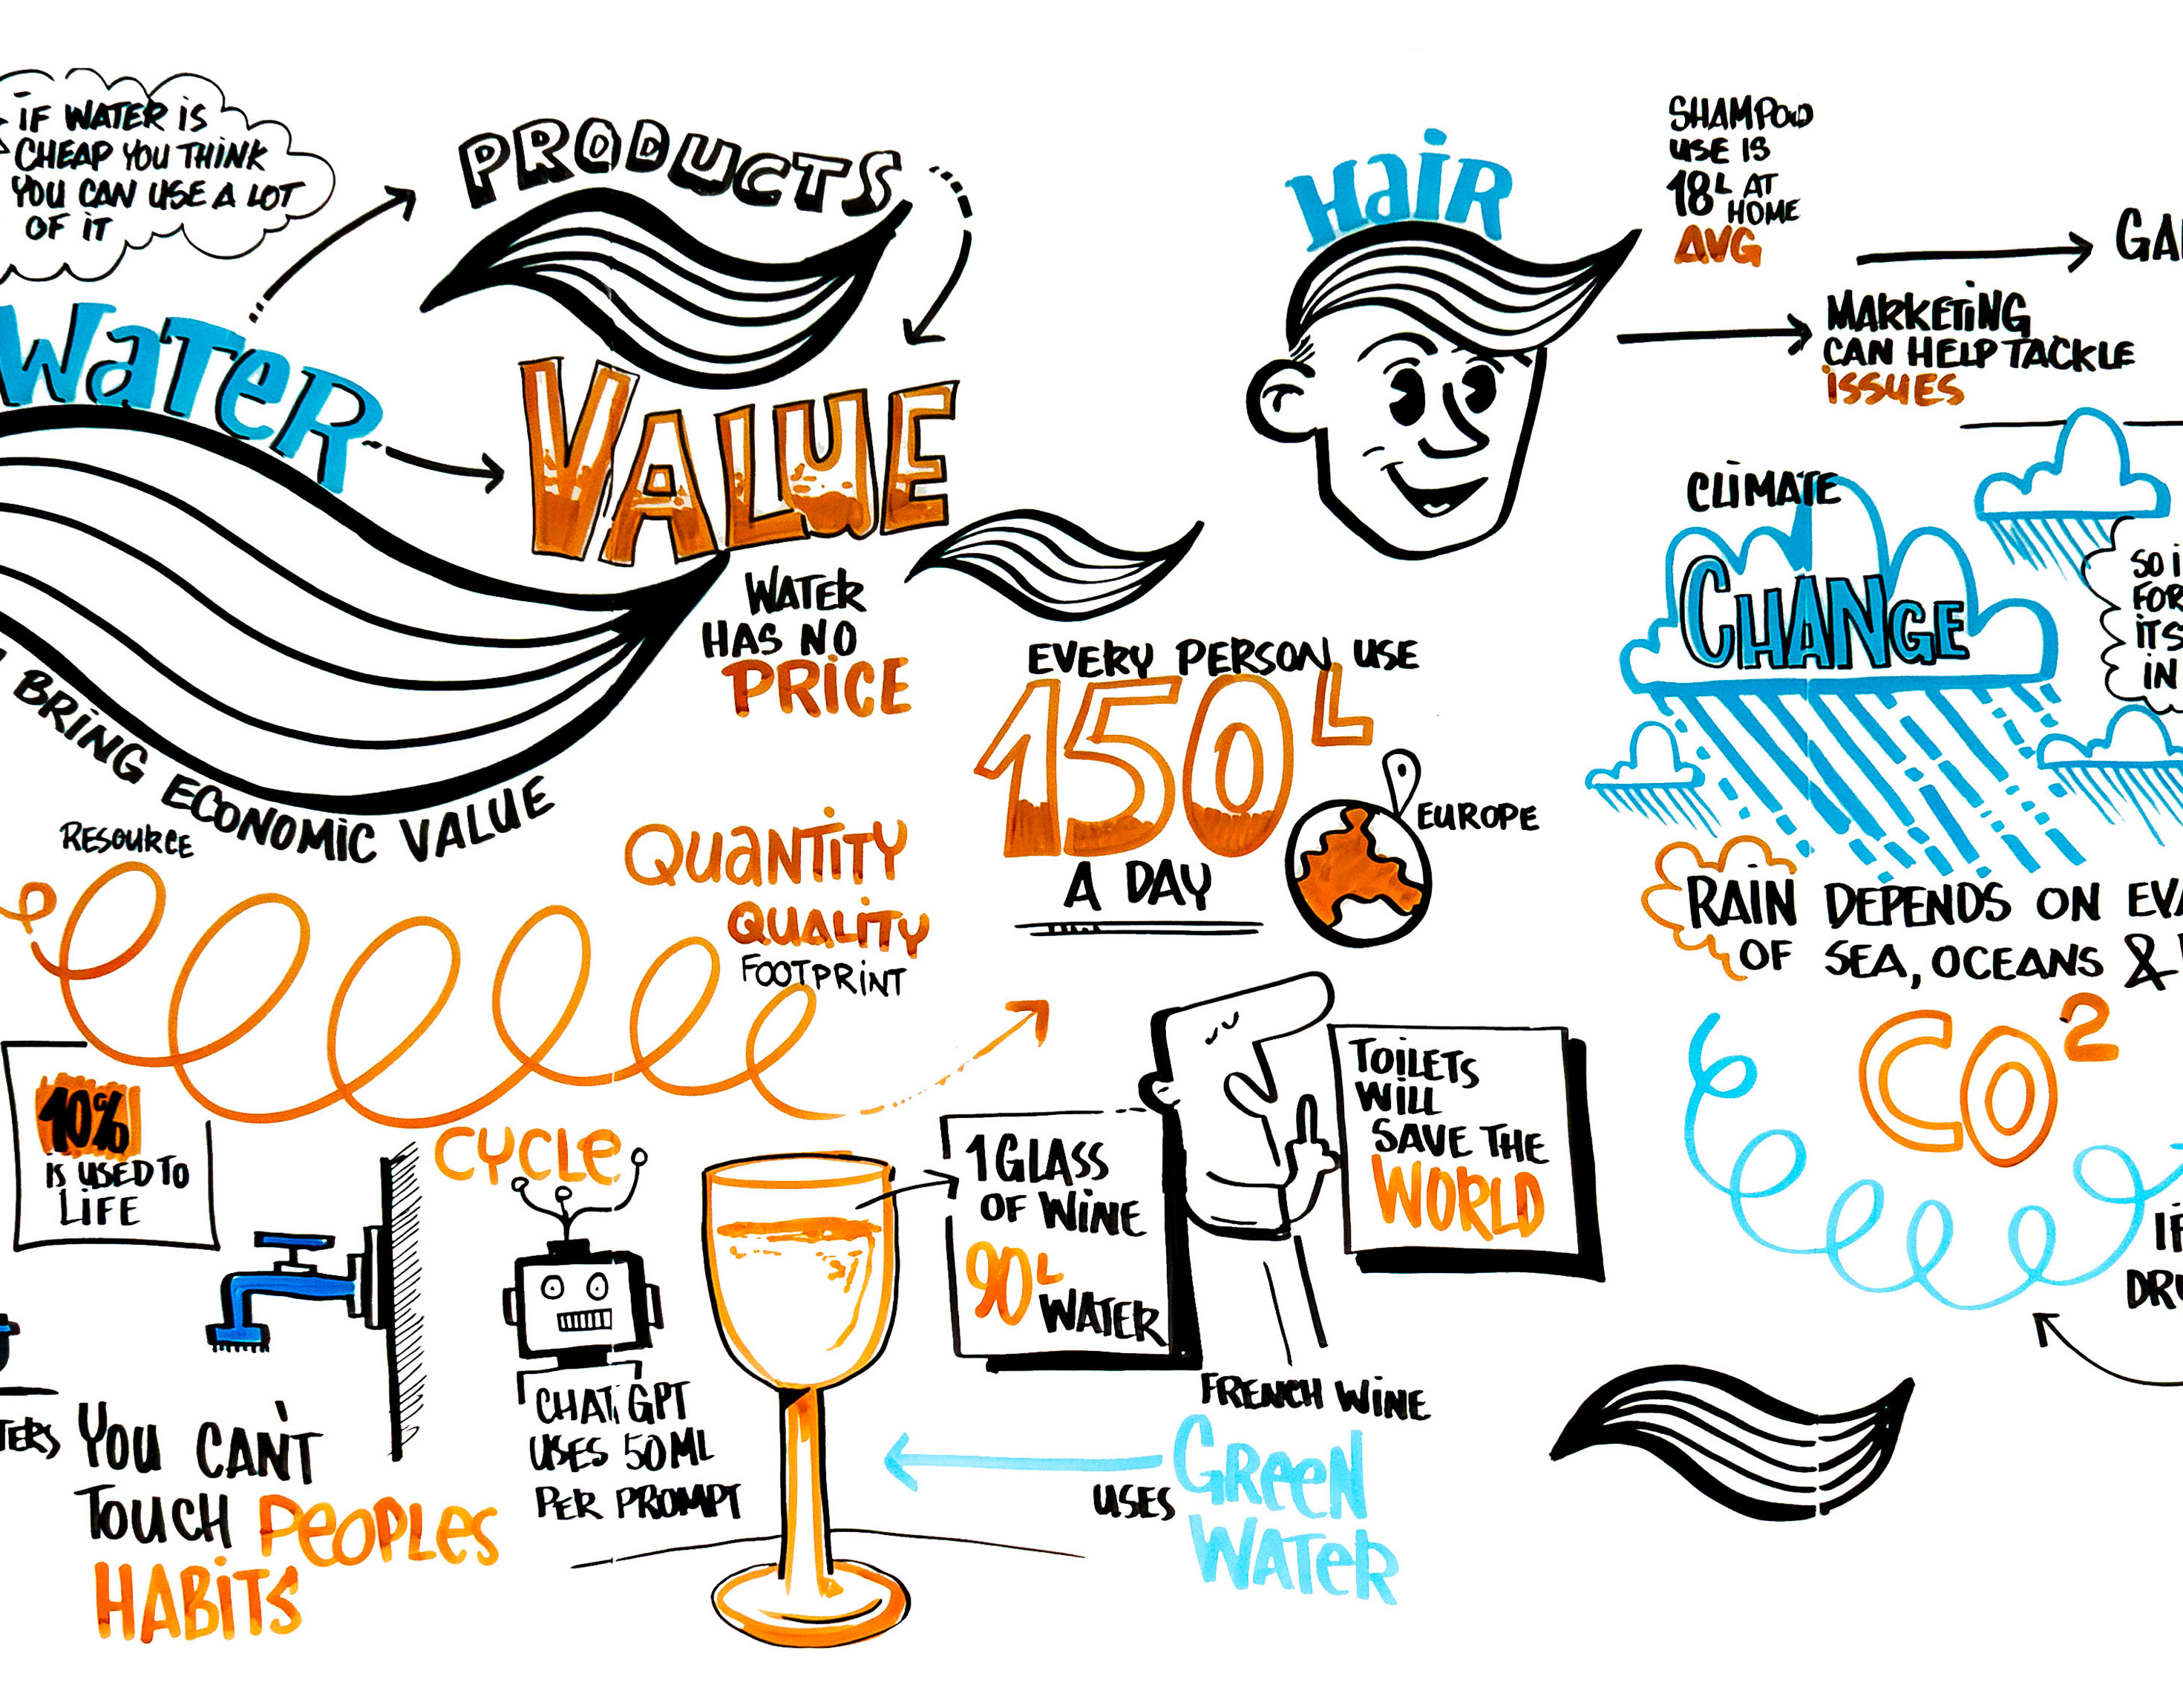 IF WATER IS
CHEAP YOU THINK
YOU CAN USE A LOT
OF IT
WATER
PRODUCTS
VALUE
WATER
HAS NO
PRICE
BRING ECONOMIC VALUE
RESOURCE
QUANTITY
QUALITY
FOOTPRINT
CYCLE
10%
IS USED TO
LIFE
YOU CAN'T
TOUCH PEOPLES
HABITS
CHAT GPT
USES 50ML
PER PROMPT
HAIR
SHAMPOO
USE IS
18L AT
HOME
AVG
MARKETING
CAN HELP TACKLE
ISSUES
EVERY PERSON USE
150L
A DAY
EUROPE
1 GLASS
OF WINE
90L
WATER
TOILETS
WILL
SAVE THE
WORLD
FRENCH WINE
USES GREEN
WATER
CLIMATE
CHANGE
SO
IN
RAIN DEPENDS ON
OF SEA, OCEANS &
CO2